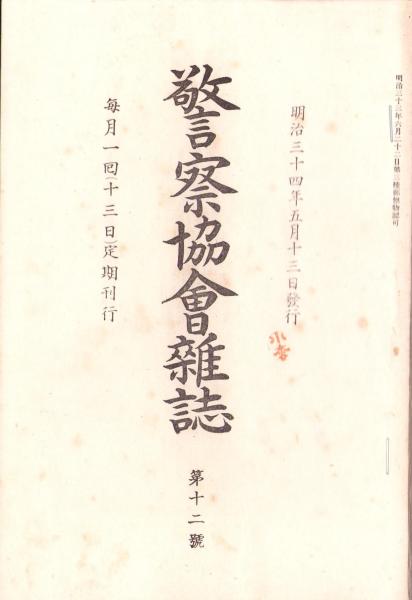 明治三十三年六月二十二日第三種郵便物認可
明治三十四年五月十三日發行
警察協會雜誌
第十二號
每月一回(十三日)定期刊行